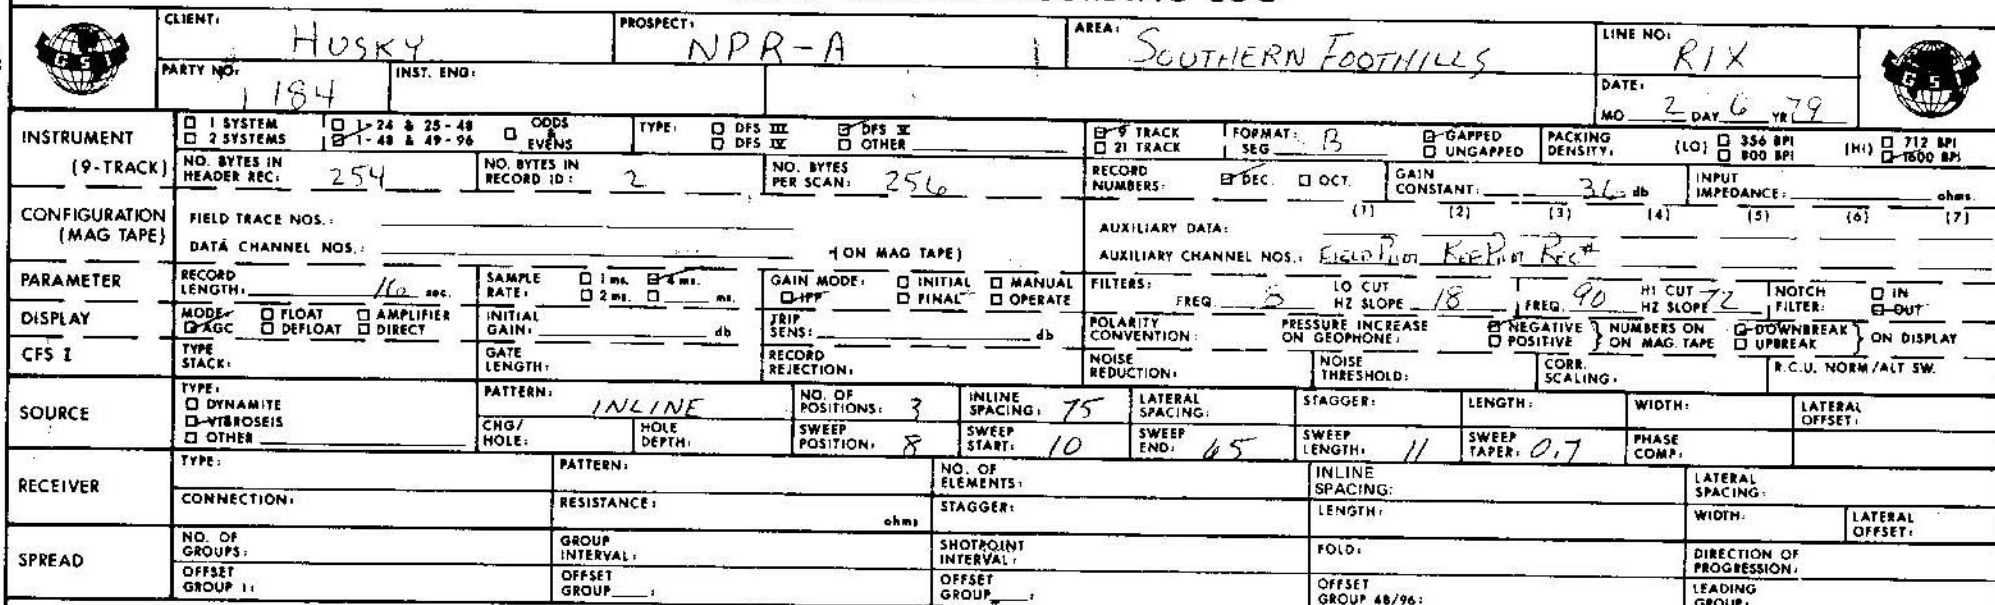 CLIENT: HUSKY PROSPECT: NPR-A AREA: SOUTHERN FOOTHILLS LINE NO: RIX
GSI GSI
PARTY NO: 184 INST. ENG: DATE:
MO 2 DAY 6 YR 79
INSTRUMENT (9-TRACK)
☐ 1 SYSTEM ☐ 1-24 & 25-48 ☐ ODDS & EVENS TYPE: ☐ DFS III ☑ DFS V ☑ 9 TRACK FORMAT: SEG B ☑ GAPPED PACKING DENSITY: (LO) ☐ 356 BPI (HI) ☐ 712 BPI
☐ 2 SYSTEMS ☑ 1-48 & 49-96 ☐ DFS IV ☐ OTHER ☐ 21 TRACK ☐ UNGAPPED ☐ 800 BPI ☑ 1600 BPI
NO. BYTES IN HEADER REC: 254 NO. BYTES IN RECORD ID: 2 NO. BYTES PER SCAN: 256 RECORD NUMBERS: ☑ DEC. ☐ OCT. GAIN CONSTANT: 36 db INPUT IMPEDANCE: ohms.
CONFIGURATION (MAG TAPE)
FIELD TRACE NOS.: AUXILIARY DATA: (1) (2) (3) (4) (5) (6) (7)
DATA CHANNEL NOS.: (ON MAG TAPE) AUXILIARY CHANNEL NOS.: FIELD PILOT REF PILOT REC#
PARAMETER
RECORD LENGTH: 16 sec. SAMPLE RATE: ☐ 1 ms. ☑ 4 ms. ☐ 2 ms. ☐ ms. GAIN MODE: ☐ INITIAL ☐ MANUAL ☑ IFP ☐ FINAL ☐ OPERATE FILTERS: FREQ. 8 LO CUT HZ SLOPE 18 FREQ. 90 HI CUT HZ SLOPE 72 NOTCH FILTER: ☐ IN ☑ OUT
DISPLAY
MODE: ☐ FLOAT ☐ AMPLIFIER ☑ AGC ☐ DEFLOAT ☐ DIRECT INITIAL GAIN: db TRIP SENS: db POLARITY CONVENTION: PRESSURE INCREASE ON GEOPHONE: ☑ NEGATIVE ☐ POSITIVE } NUMBERS ON ON MAG. TAPE ☑ DOWNBREAK ☐ UPBREAK } ON DISPLAY
CFS I
TYPE STACK: GATE LENGTH: RECORD REJECTION: NOISE REDUCTION: NOISE THRESHOLD: CORR. SCALING: R.C.U. NORM/ALT SW.
SOURCE
TYPE: ☐ DYNAMITE ☑ VIBROSEIS ☐ OTHER
PATTERN: INLINE NO. OF POSITIONS: 3 INLINE SPACING: 75 LATERAL SPACING: STAGGER: LENGTH: WIDTH: LATERAL OFFSET:
CHG/HOLE: HOLE DEPTH: SWEEP POSITION: 8 SWEEP START: 10 SWEEP END: 65 SWEEP LENGTH: 11 SWEEP TAPER: 0.7 PHASE COMP:
RECEIVER
TYPE: PATTERN: NO. OF ELEMENTS: INLINE SPACING: LATERAL SPACING:
CONNECTION: RESISTANCE: ohms STAGGER: LENGTH: WIDTH: LATERAL OFFSET:
SPREAD
NO. OF GROUPS: GROUP INTERVAL: SHOTPOINT INTERVAL: FOLD: DIRECTION OF PROGRESSION:
OFFSET GROUP 1: OFFSET GROUP : OFFSET GROUP : OFFSET GROUP 48/96: LEADING GROUP: